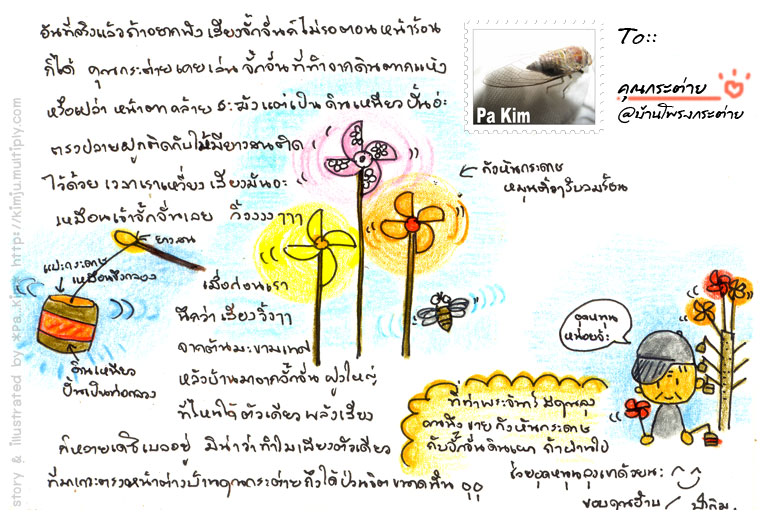 อันที่จริงแล้วถ้าอยากฟังเสียงจั๊กจั่นก็ไม่รอตอนหน้าร้อน
ก็ได้ คุณกระต่ายเคยเล่นจั๊กจั่นที่ทำจากดินตากแห้ง
หรือเปล่า หน้าตาคล้าย
แต่เป็นดินเหนียวปั้นอ่ะ
ตรงปลายผูกติดกับไม้มียางสนติด
ไว้ด้วย เวลาเราเหวี่ยงเสียงมันจะ
เหมือนเจ้าจั๊กจั่นเลย วิ้งงงง ๆๆๆ
ยางสน
แปะกระดาษ
เหมือนขึงกลอง
ดินเหนียว
ปั้นเป็นท่อกลวง
เมื่อก่อนเรา
นึกว่าเสียงวิ้งๆๆ
จากต้นมะขามเทศ
หลังบ้านมาจากจั๊กจั่นฝูงใหญ่
ที่ไหนได้ ตัวเดียว พลังเสียง
ก็หลายเดซิเบลอยู่ มิน่าว่าทำไมเสียงตัวเดียว
ที่มาเกาะตรงหน้าต่างบ้านคุณกระต่ายถึงได้ป่วนจิตขนาดนั้น
Pa Kim
To::
คุณกระต่าย
@บ้านโพรงกระต่าย
กังหันกระดาษ
หมุนติ้วๆรับลมร้อน
อุดหนุน
หน่อยจ้ะ
ที่ท่าพระจันทร์ มีคุณลุง
คนนึง ขายกังหันกระดาษ
กับจั๊กจั่นดินแยก ถ้าผ่านไป
ช่วยอุดหนุนลุงเขาด้วยนะ
ขอบคุณฮ้าบ / ป้าคิม.
story & illustrated by *pa.kim* http://kimju.multiply.com